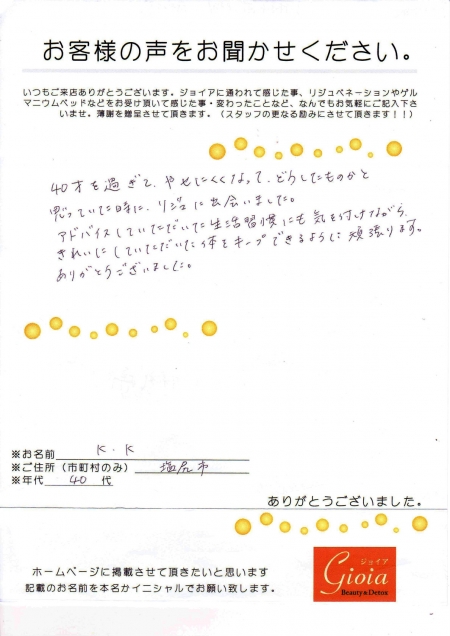 お客様の声をお聞かせください。
いつもご来店ありがとうございます。ジョイアに通われて感じた事、リジュベネーションやゲル
マニウムベッドなどをお受け頂いて感じた事・変わったことなど、なんでもお気軽にご記入下さ
いませ。薄謝を贈呈させて頂きます。（スタッフの更なる励みにさせて頂きます！！）
40才を過ぎて、やせにくくなって、どうしたものかと
思っていた時に、リジュに出会いました。
アドバイスしていただいた生活習慣にも気を付けながら、
きれいにしていただいた体をキープできるように頑張ります。
ありがとうございました。
※お名前 K.K
※ご住所（市町村のみ） 塩尻市
※年代 40 代
ありがとうございました。
ホームページに掲載させて頂きたいと思います
記載のお名前を本名かイニシャルでお願い致します。
ジョイア
Gioia
Beauty&Detox